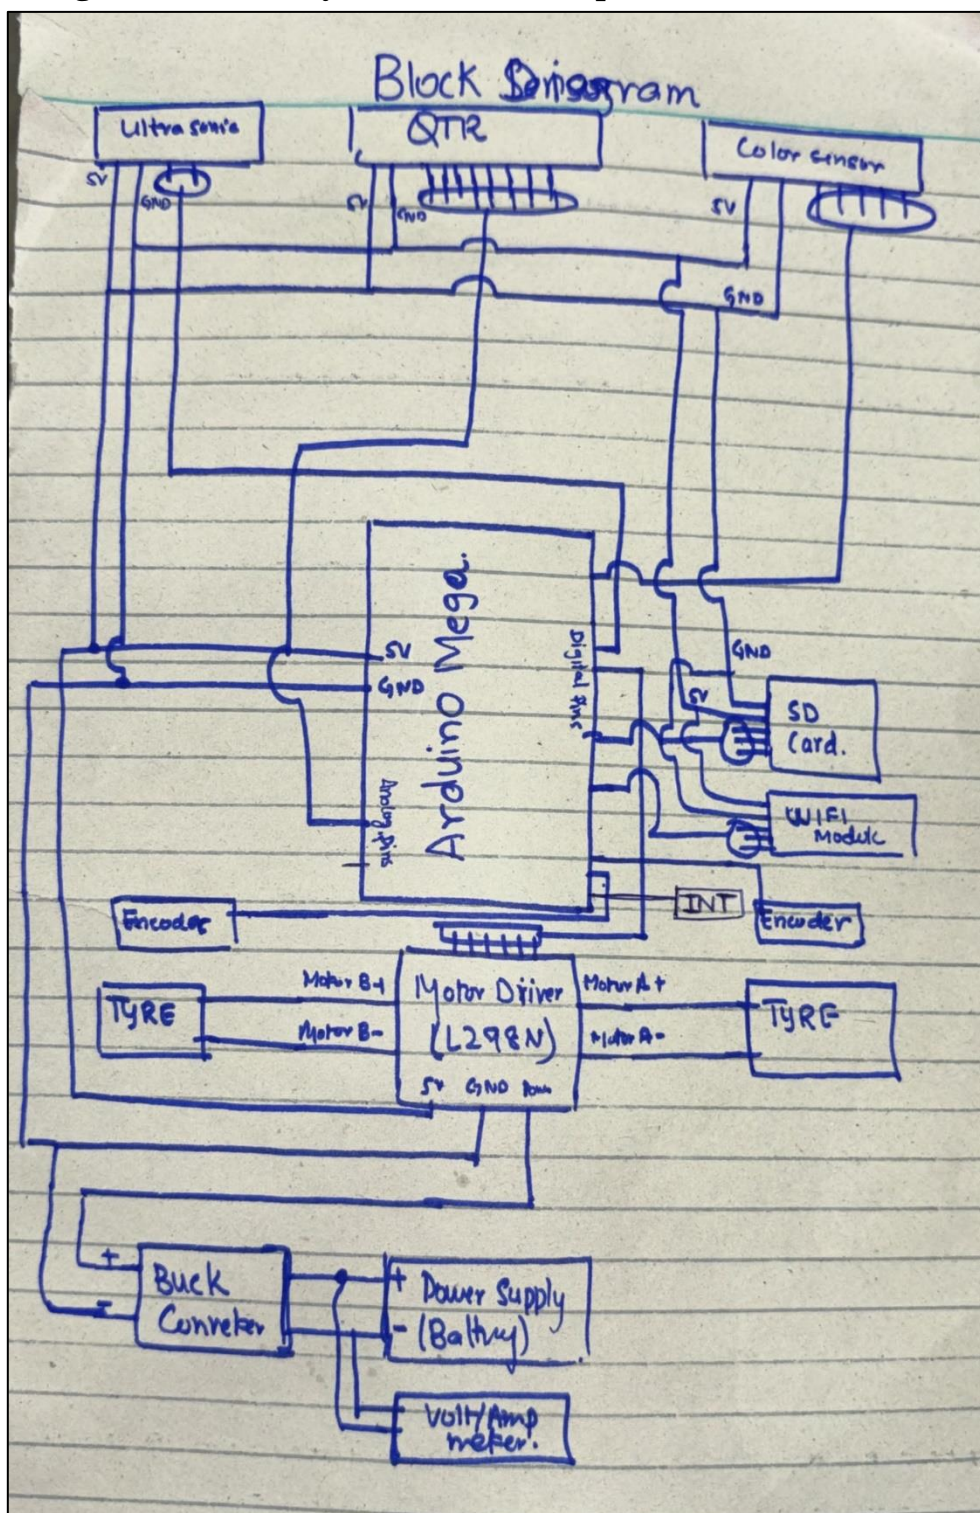 Block Diagram
Ultrasonic
QTR
Color sensor
5V
GND
5V
GND
5V
GND
Arduino Mega.
5V
GND
Digital Pins
Analog Pins
GND
5V
SD
Card.
WIFI
Module
INT
Encoder
Encoder
Motor B+
Motor B-
Motor Driver
(L298N)
Motor A+
Motor A-
TYRE
TYRE
5V GND Power
+
-
Buck
Converter
+
-
Power Supply
(Battery)
Volt/Amp
meter.